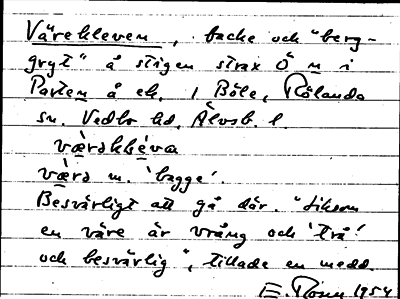 Värekleven, backe och "berg-
gryt" å stigen strax Ö n i
Porten å ek. 1 Böle, Rölanda
sn. Vedbo hd, Älvsb. l.
værəkléva
værə m. 'bagge'.
Besvärligt att gå där. "Liksom
en väre är vrång och 'trå'
och besvärlig", tillade en medd.
1954